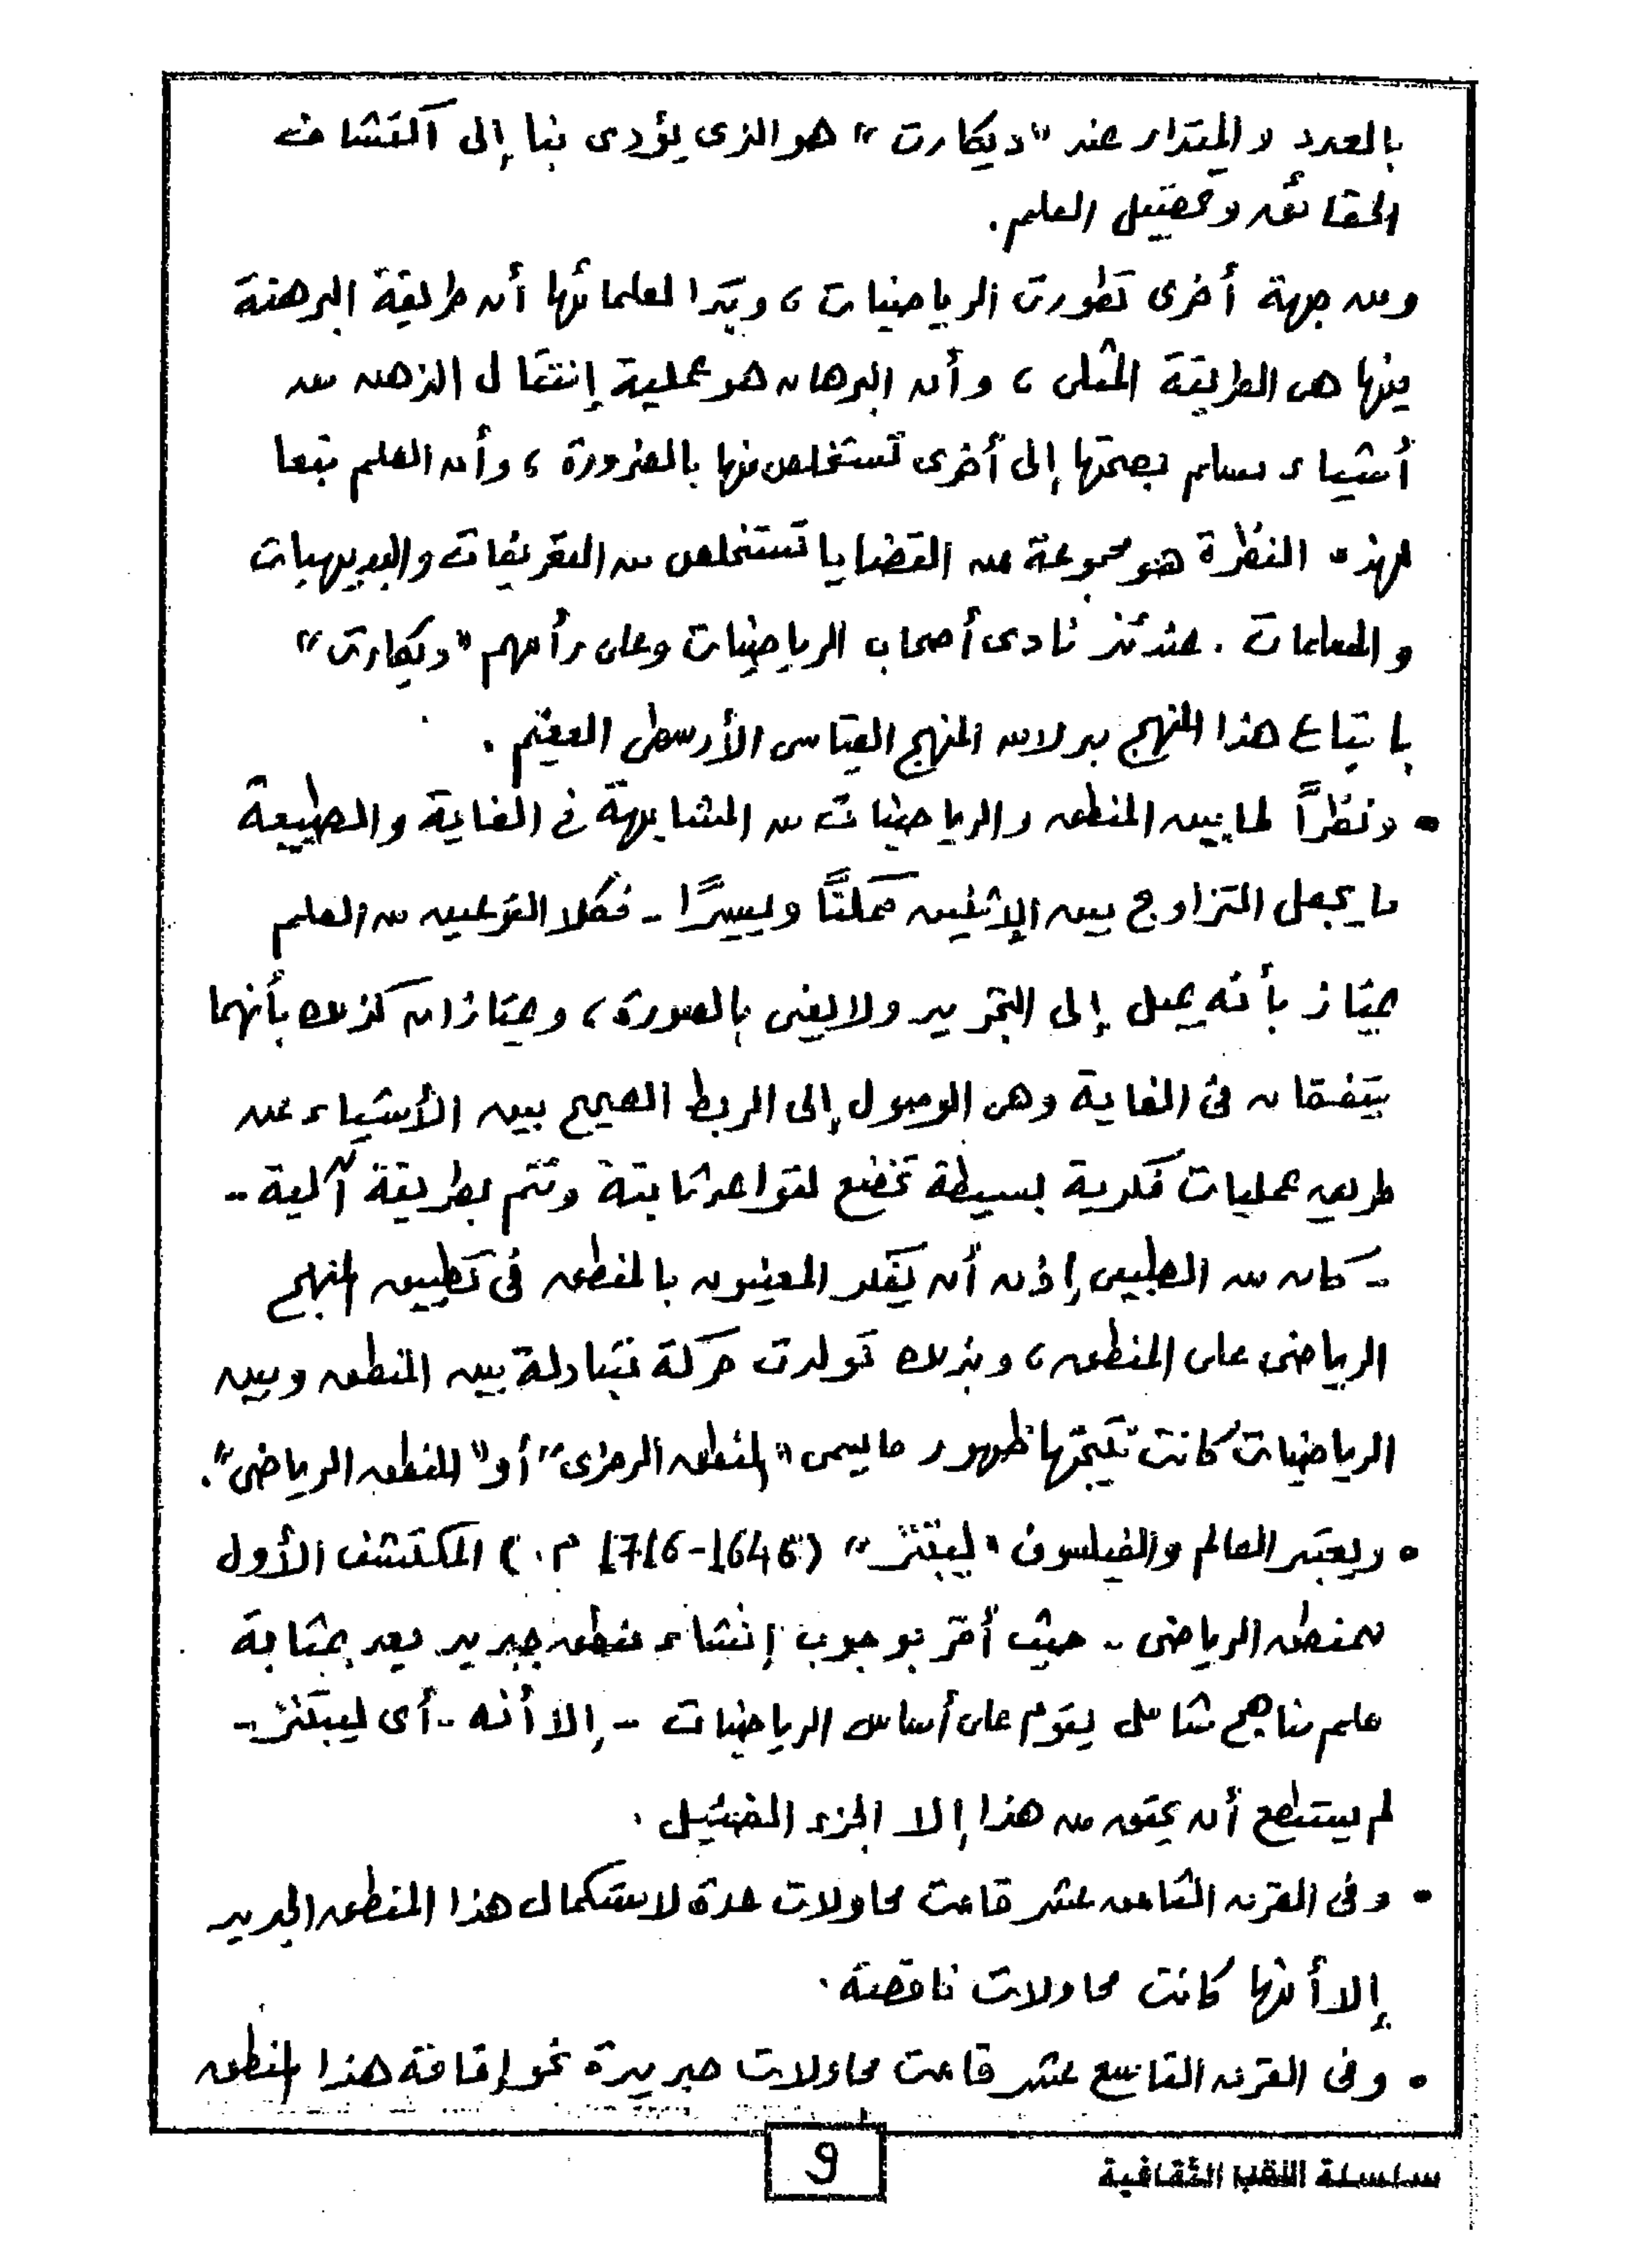 بالعدد والمقدار عند "ديكارت" هو الذى يؤدى بنا إلى اكتشاف
الحقائق وتحصيل العلم.
ومن جهة أخرى تطورت الرياضيات، وبدا لعلمائها أن طريقة البرهنة
فيها هى الطريقة المثلى، وأن البرهان هو عملية إنتقال الذهن من
أشياء مسلم بصحتها إلى أخرى تستخلص منها بالضرورة، وأن العلم تبعا
لهذه النظرة هو مجموعة من القضايا تستخلص من التعريفات والبديهيات
والمسلمات. عندئذ نادى أصحاب الرياضيات وعلى رأسهم "ديكارت"
باتباع هذا المنهج بدلا من المنهج القياسى الأرسطى العقيم.
• ونظراً لما بين المنطق والرياضيات من المشابهة فى الغاية والطبيعة
ما يجعل التزاوج بين الإثنين ممكنًا ويسيرًا - فكلا النوعين من العلم
يمتاز بأنه يميل إلى التجريد ولا يعنى بالصورة، ويمتازان كذلك بأنهما
يتفقان فى الغاية وهى الوصول إلى الربط الصحيح بين الأشياء عن
طريق عمليات فكرية بسيطة تخضع لقواعد ثابتة وتتم بطريقة آلية -
- كان من الطبيعى إذن أن يفكر المعنيون بالمنطق فى تطبيق المنهج
الرياضى على المنطق، وبذلك تولدت حركة متبادلة بين المنطق وبين
الرياضيات كانت نتيجتها ظهور ما يسمى "المنطق الرمزى" أو "المنطق الرياضى".
• ويعتبر العالم والفيلسوف "ليبتنز" (1646-1716 م.) المكتشف الأول
للمنطق الرياضى - حيث أقر بوجوب إنشاء منطق جديد يعد بمثابة
علم مناهج شامل يقوم على أساس الرياضيات - إلا أنه - أى ليبتنز -
لم يستطع أن يحقق من هذا إلا الجزء الضئيل.
• وفى القرن الثامن عشر قامت محاولات عدة لاستكمال هذا المنطق الجديد
إلا أنها كانت محاولات ناقصة.
• وفى القرن التاسع عشر قامت محاولات جديدة نحو إقامة هذا المنطق
9
سلسلة النقد الثقافية